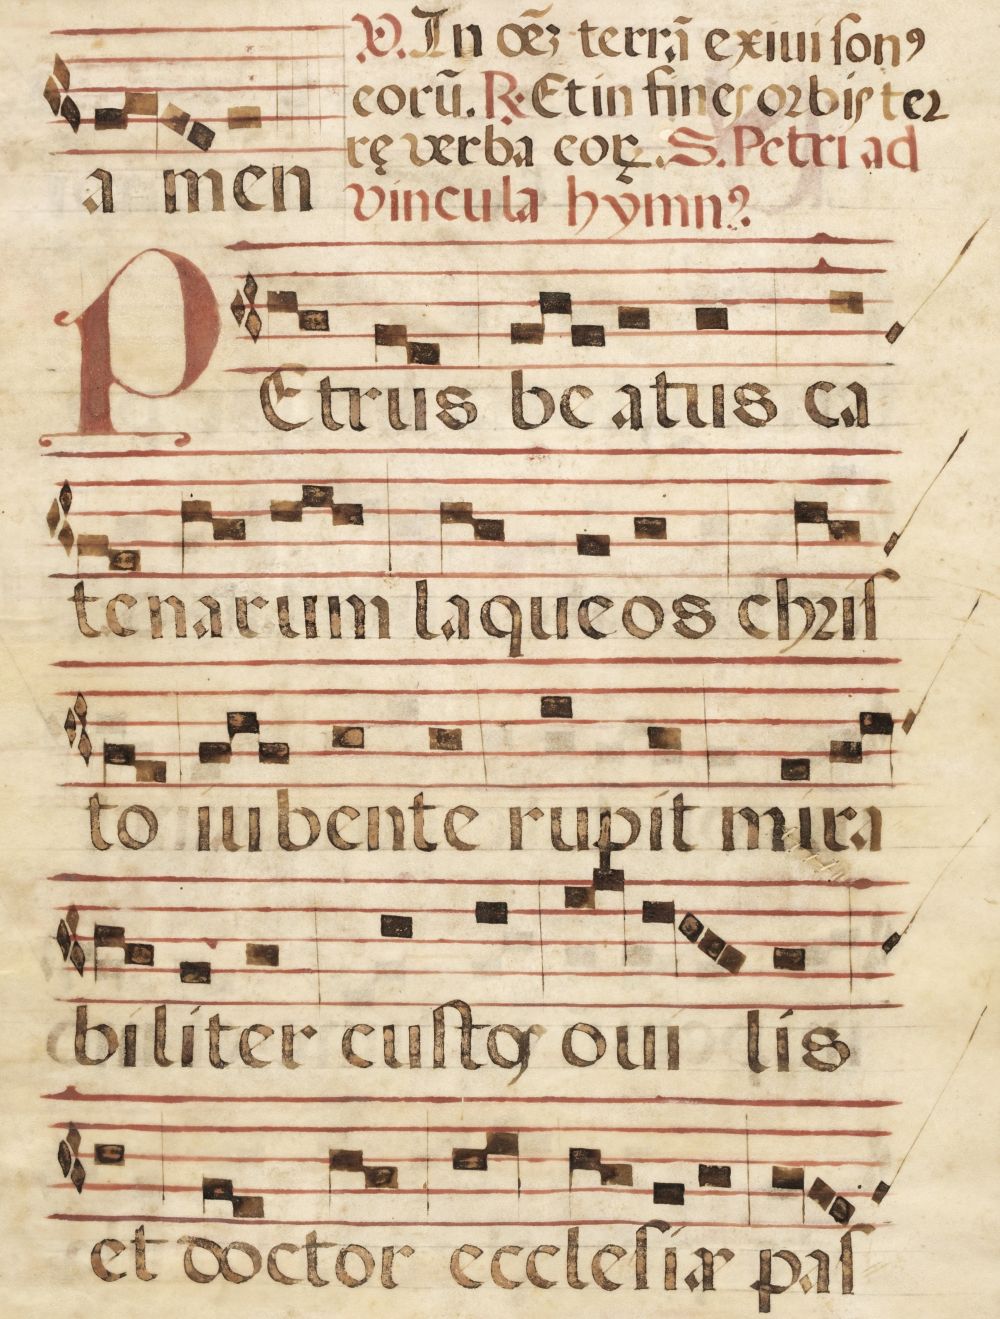 a men
V. In oēs terrā exiuit son⁹
eorū. R. Et in fines orbis ter
rę verba eoꝝ. S. Petri ad
vincula hymn⁹.
PEtrus beatus ca
tenarum laqueos chris
to iubente rupit mira
biliter custos oui lis
et doctor ecclesiæ pas